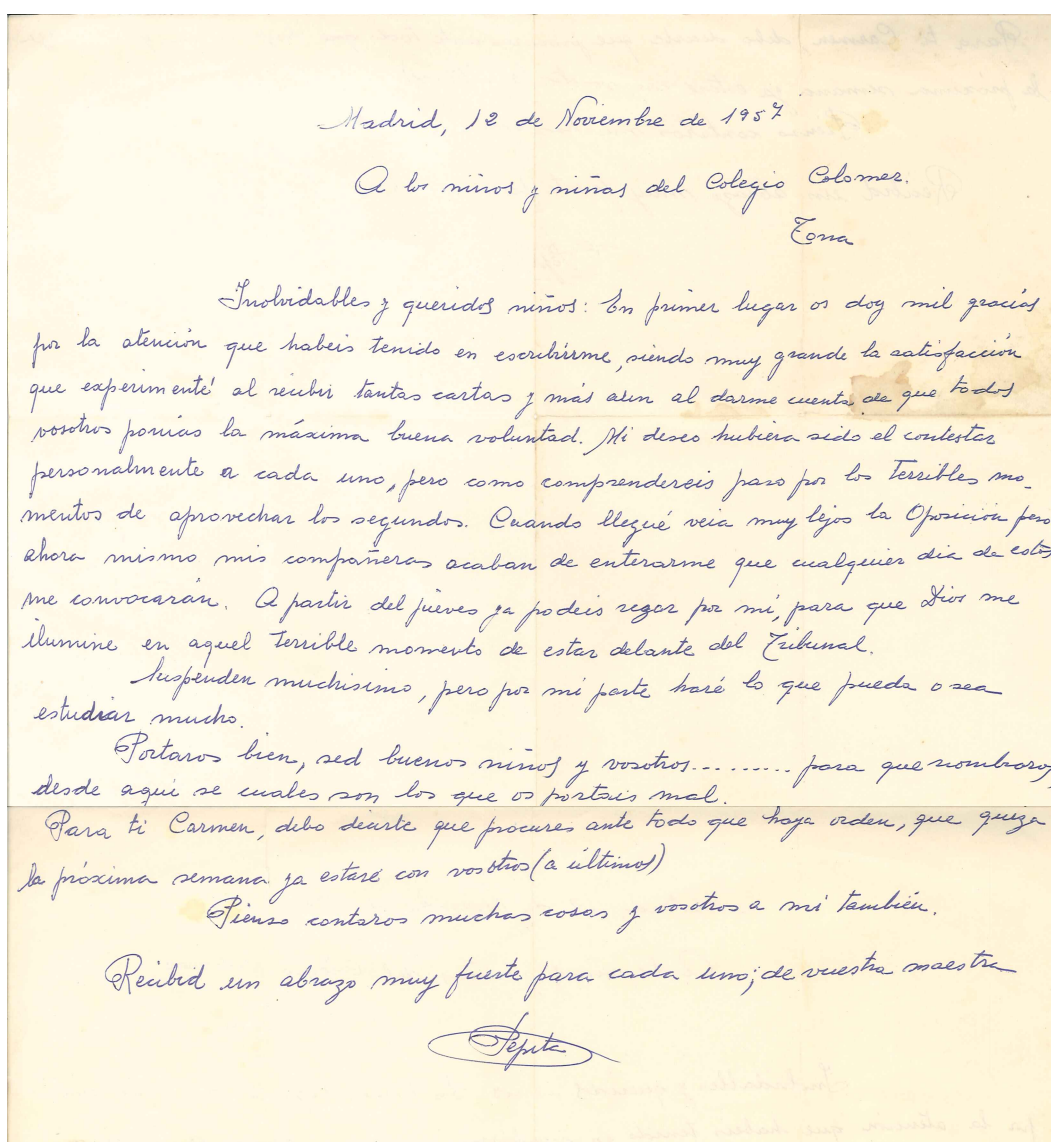 Madrid, 12 de Noviembre de 1957
A los niños y niñas del Colegio Colomer.
Tona
Inolvidables y queridos niños: En primer lugar os doy mil gracias
por la atención que habeis tenido en escribirme, siendo muy grande la satisfacción
que experimenté al recibir tantas cartas y más aún al darme cuenta de que todos
vosotros poniais la máxima buena voluntad. Mi deseo hubiera sido el contestar
personalmente a cada uno, pero como comprendereis paso por los terribles mo-
mentos de aprovechar los segundos. Cuando llegué veia muy lejos la Oposición pero
ahora mismo mis compañeras acaban de enterarme que cualquier dia de estos
me convocarán. A partir del jueves ya podeis rezar por mí, para que Dios me
ilumine en aquel terrible momento de estar delante del Tribunal.
Suspenden muchisimo, pero por mi parte haré lo que pueda o sea
estudiar mucho.
Portaros bien, sed buenos niños y vosotros......... para que nombraros,
desde aqui se cuales son los que os portais mal.
Para ti Carmen, debo decirte que procures ante todo que haya orden, que quiza
la próxima semana ya estaré con vosotros (a últimos)
Pienso contaros muchas cosas y vosotros a mi también.
Recibid un abrazo muy fuerte para cada uno; de vuestra maestra
Pepita